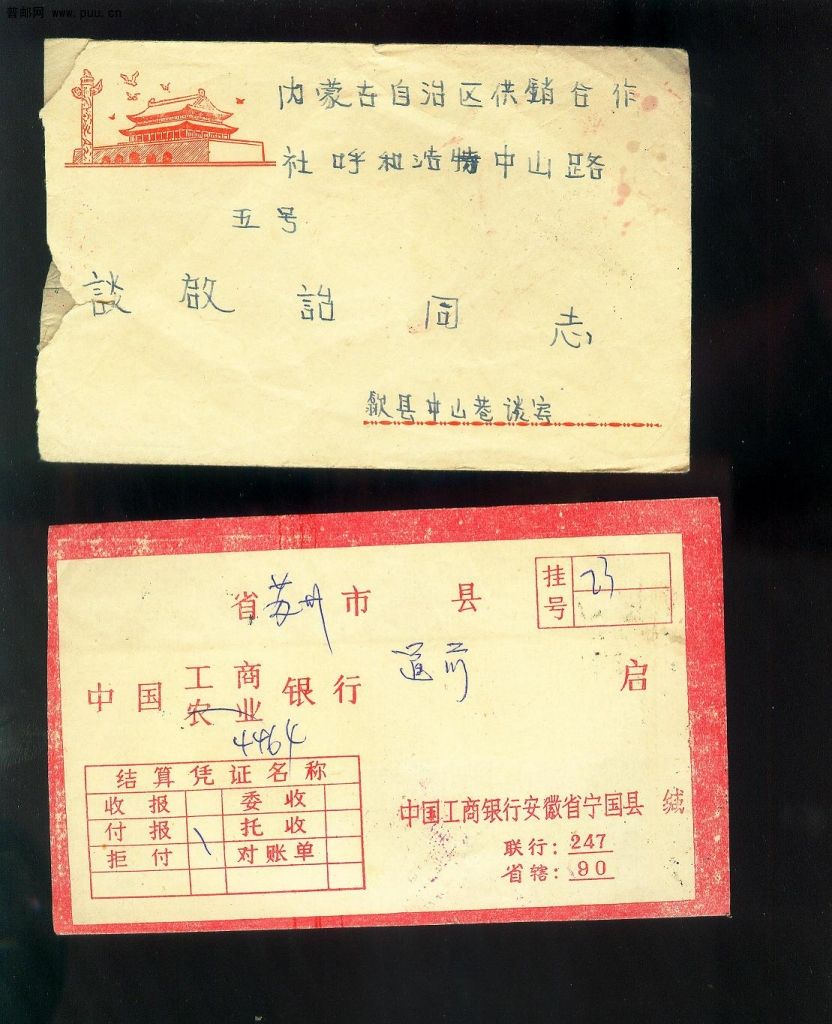 普邮网 www.puu.cn
内蒙古自治区供銷合作
社呼和浩特中山路
五号
談啟詒同志
歙县中山巷谈寄
省苏州市 县
挂号 23
中国工商农业银行 道前 启
4464
结算凭证名称
收报 委收
付报 托收
拒付 对账单
中国工商银行安徽省宁国县 缄
联行:247
省辖:90